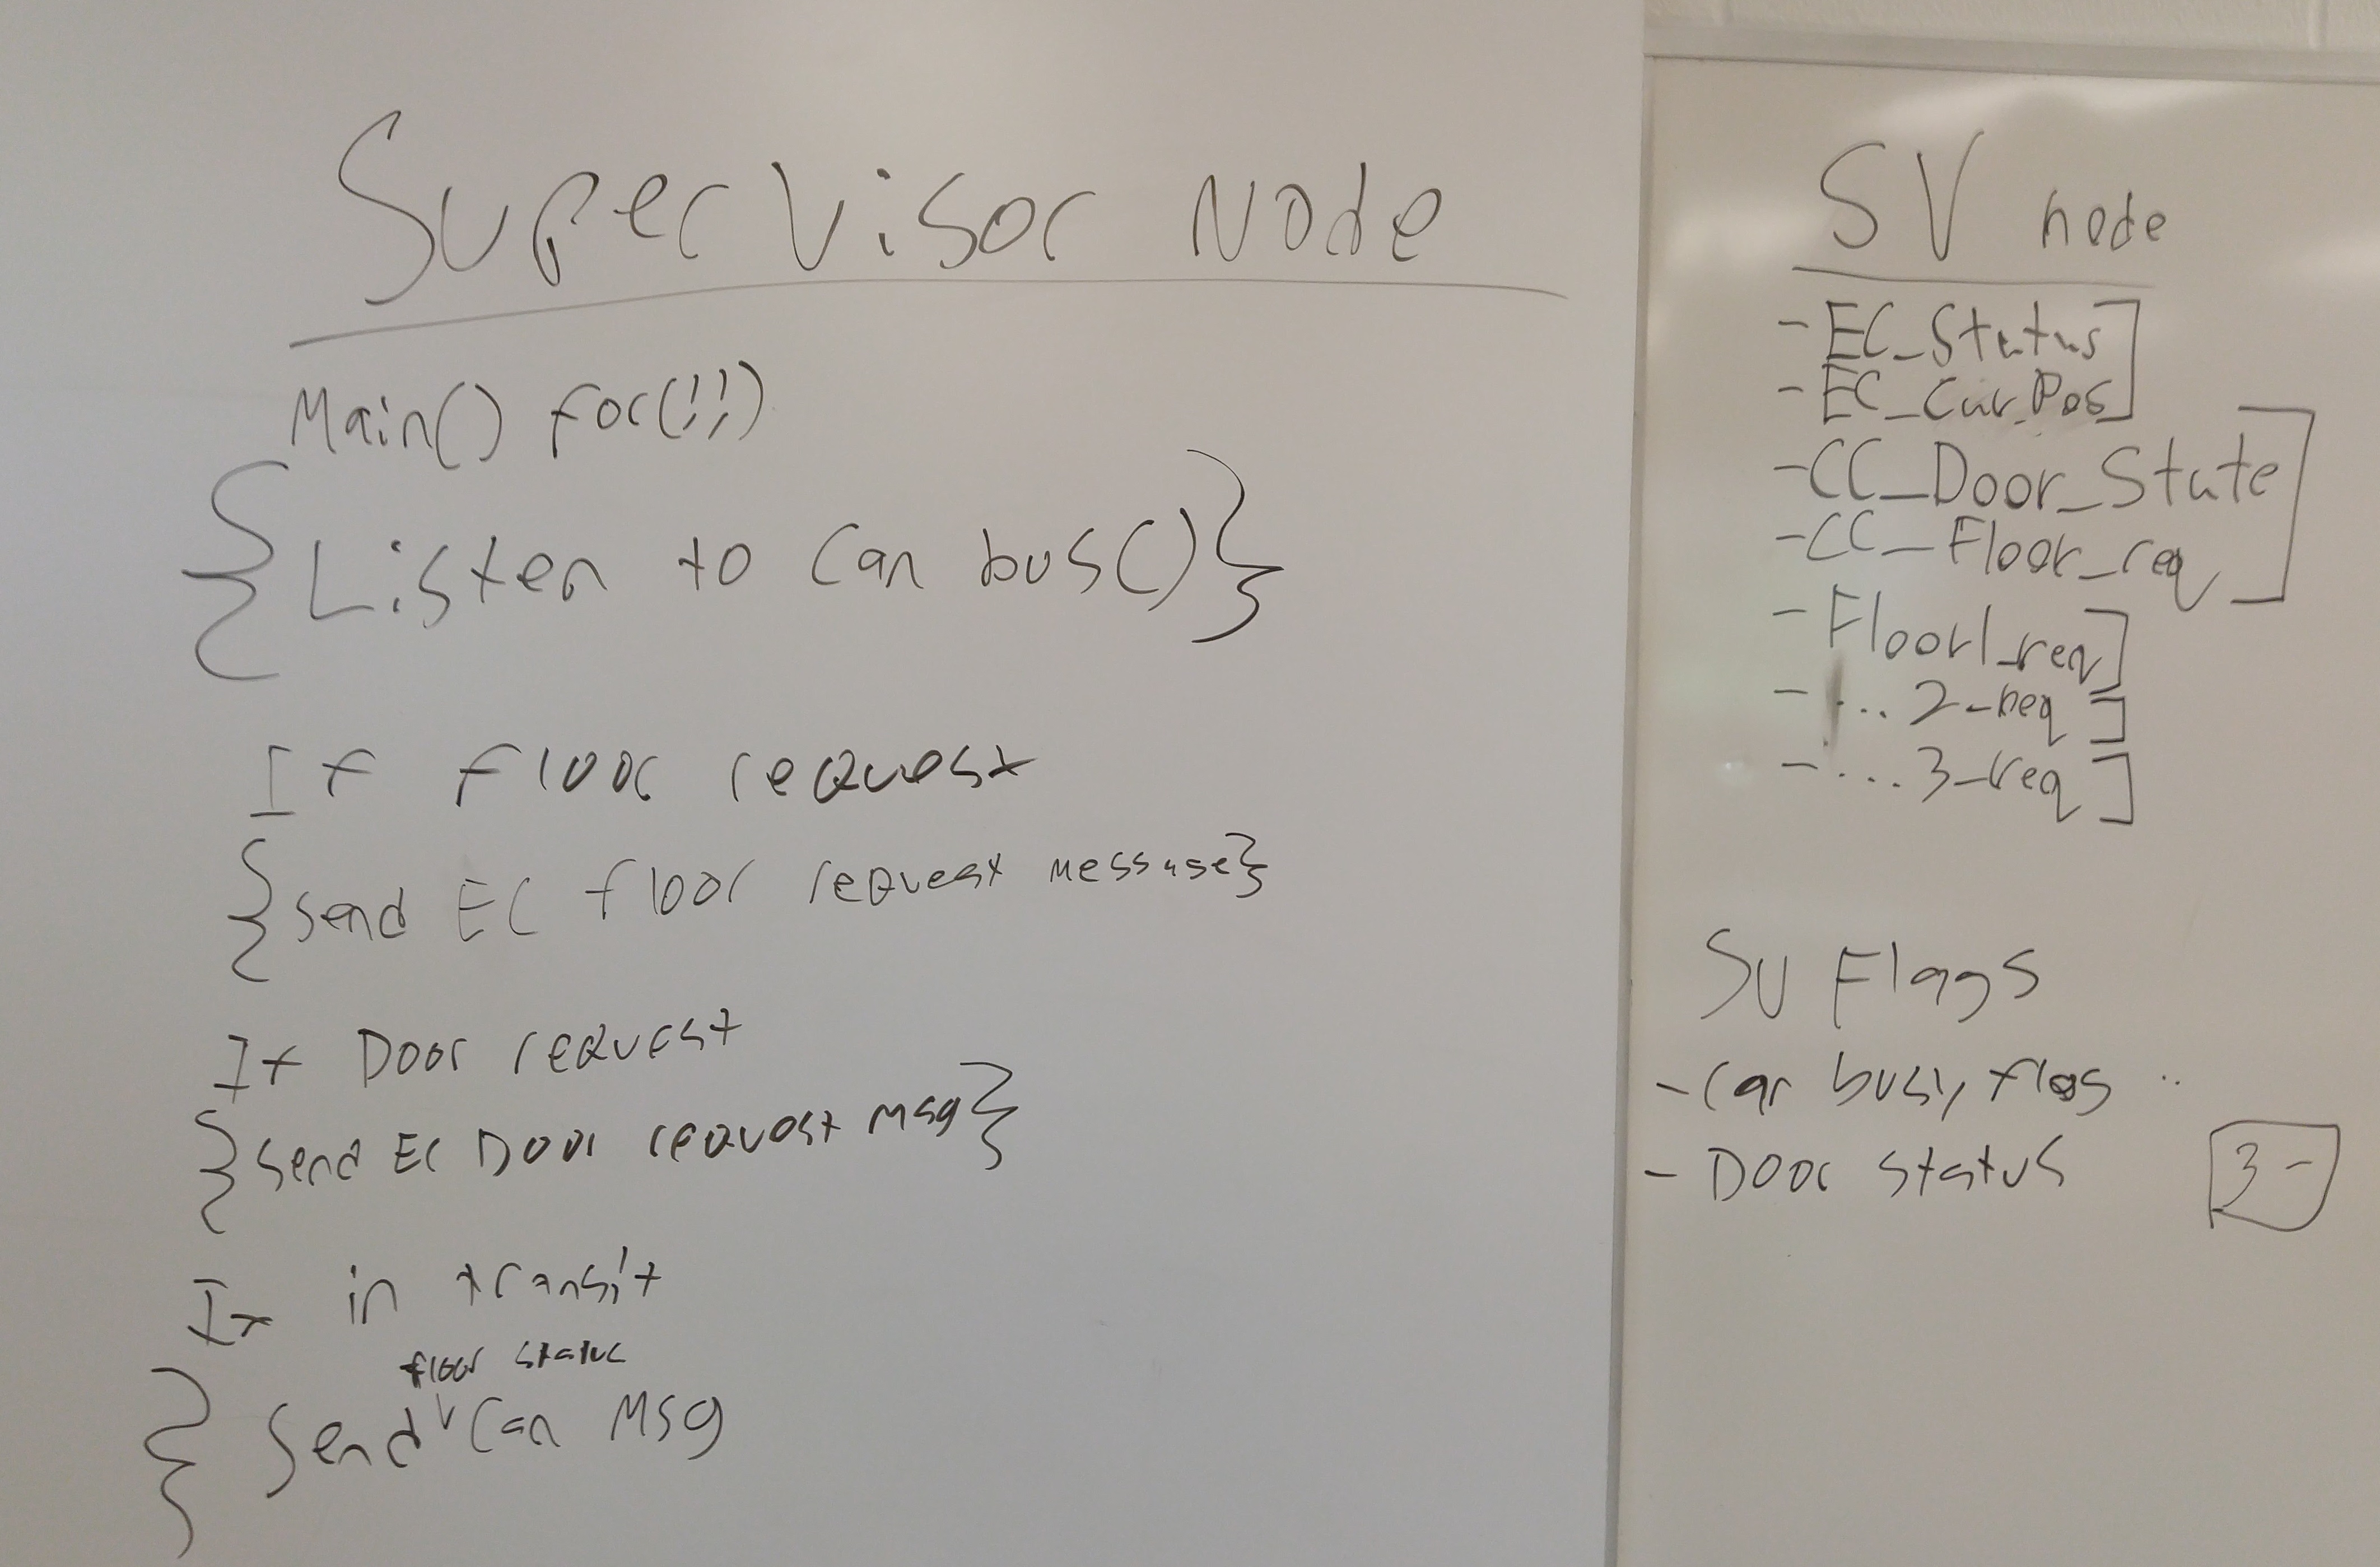 Supervisor Node
Main() for(;;)
{Listen to Can bus()}
If floor request
{send EC floor request message}
If Door request
{send EC Door request msg}
If in transit
floor status
{ Send Can Msg
SV node
- EC_Status]
- EC_Cur_Pos]
- CC_Door_State
- CC_Floor_req]
- Floor1_req]
- ... 2_req]
- ... 3_req]
SV Flags
- Car busy flag ..
- Door status
3-